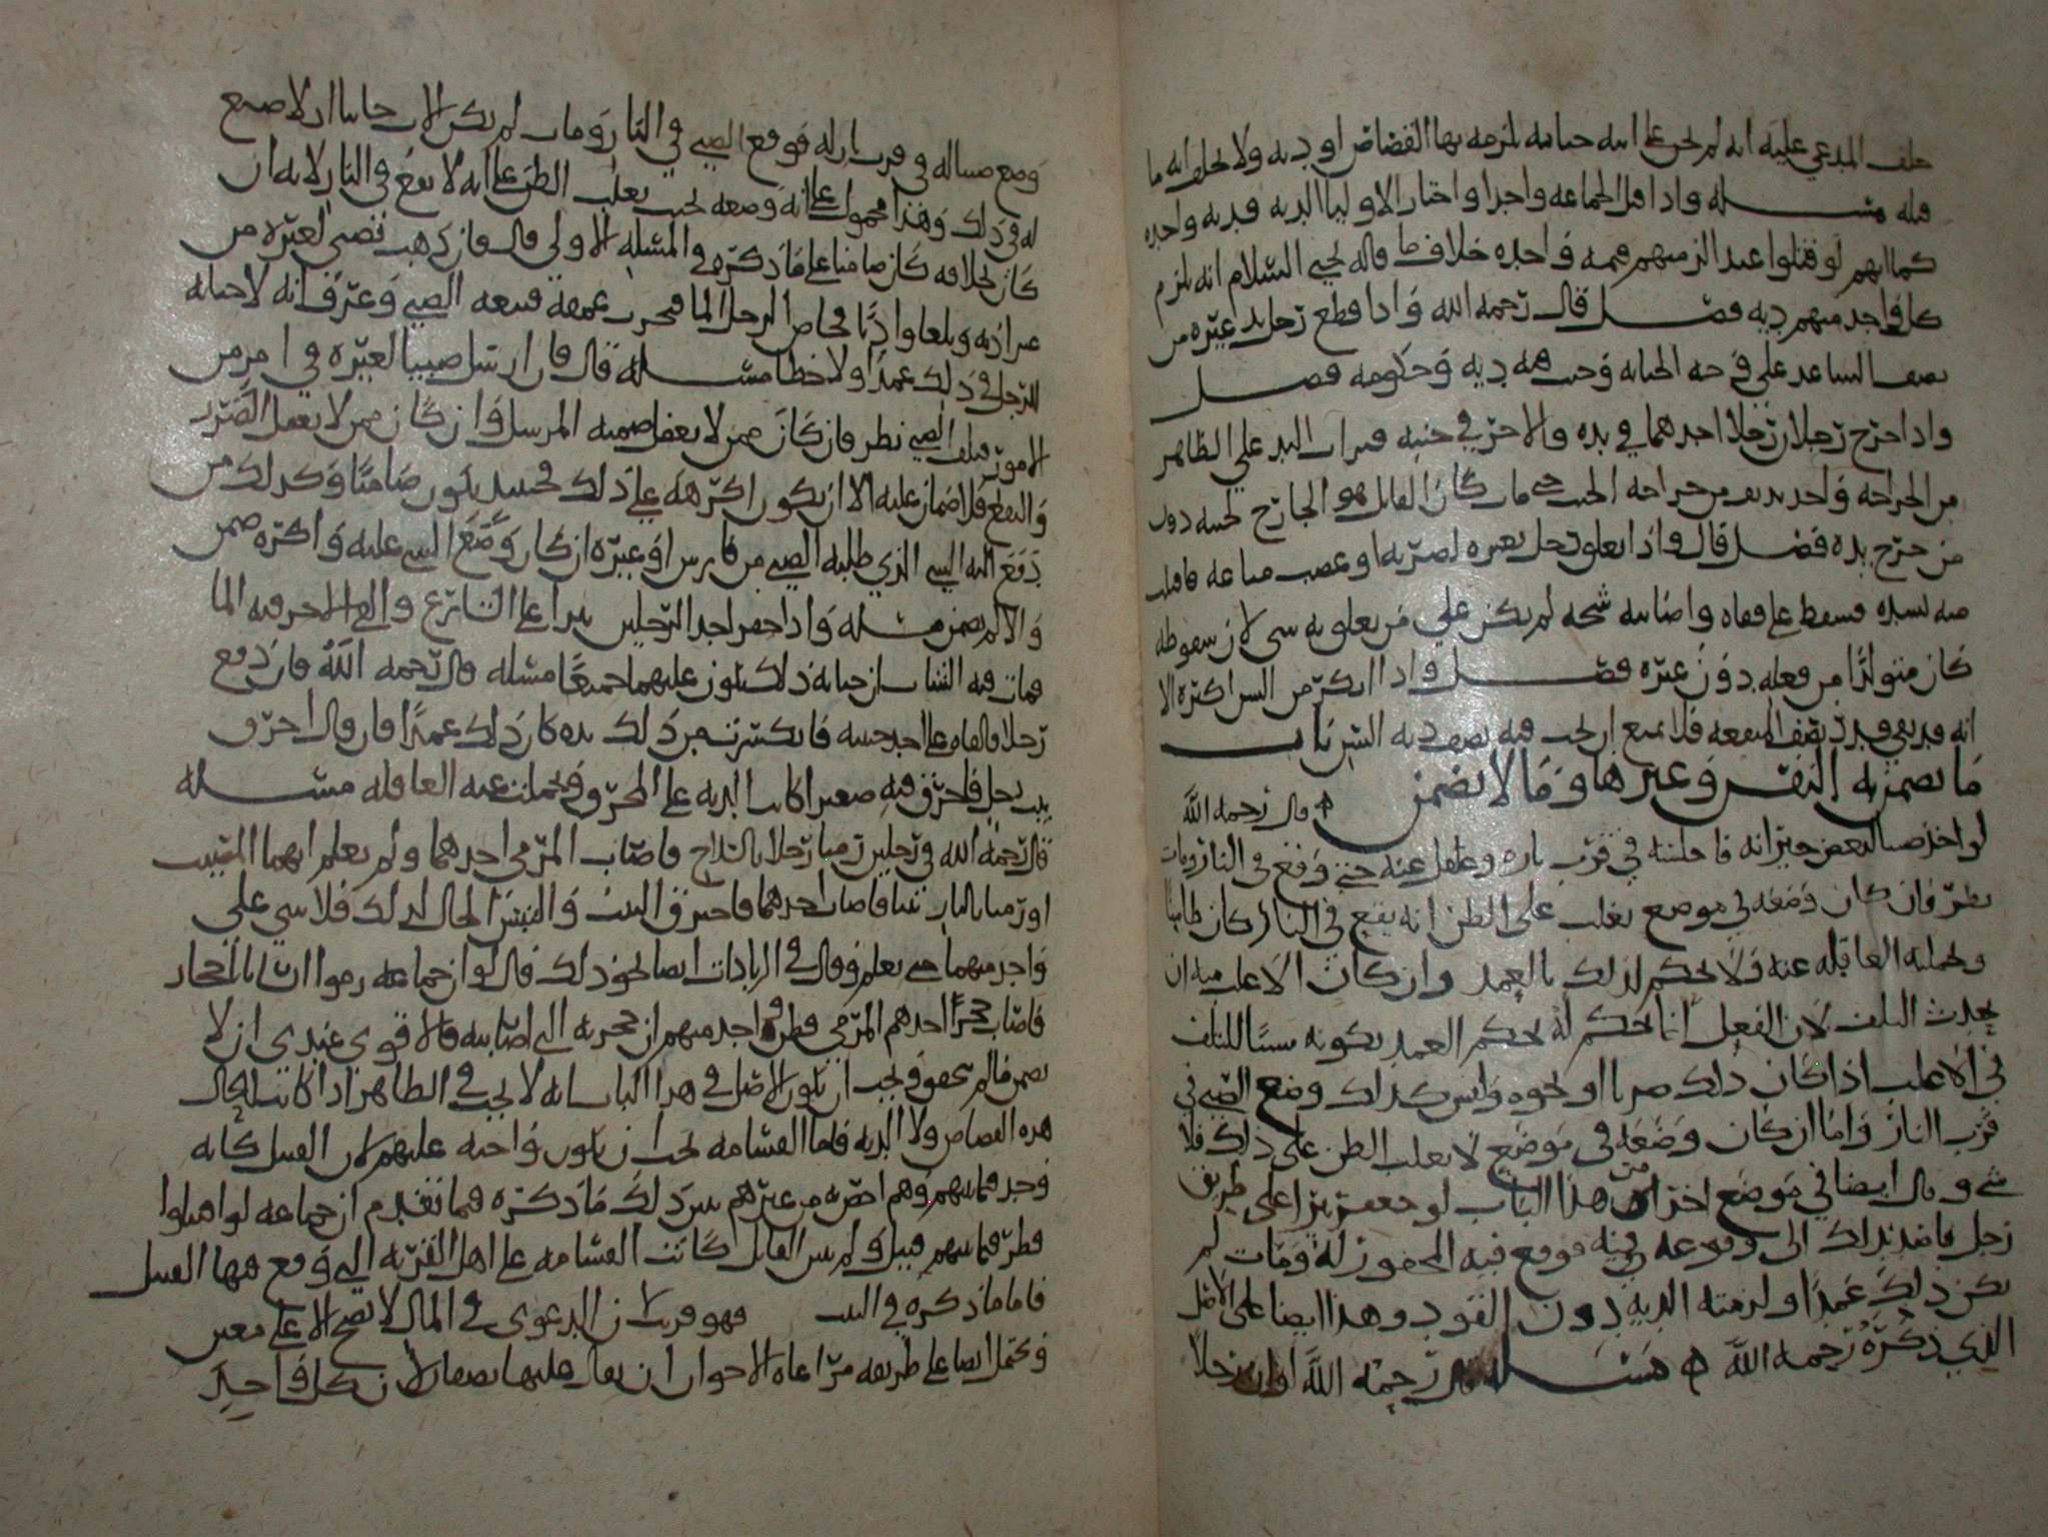 حلف المدعي عليه انه لم يجن على ابنه جنايه يلزمه بها القصاص او ديه ولا يحلف انه ما
قتله مسله واذا قتل الجماعه واحدا واختار الاوليا الديه فديه واحده
كما انهم لو قتلوا عبدا لزمهم قيمه واحده خلاف ما قاله يحيى السلام انه يلزم
كل واحد منهم ديه فصل قال رحمه الله واذا قطع رجل يد غيره من
نصف الساعد على وجه الجنايه وجب فيه ديه وحكومه فصل
واذا جرح رجلان رجلا احدهما في يده والاخر في جنبه فبرات اليد على الظاهر
من الجراحه واحد من جراحه الجنب حتى مات كان القاتل هو الجارح لجنبه دون
من جرح يده فصل قال واذا تعلق رجل بغيره لضربه او غصب متاعه فافلت
منه لشده فسقط على قفاه واصابته شجه لم يكن على من تعلق به شي لان سقوطه
كان متولدا من فعله دون غيره فصل واذا انكسر من السن اكثره الا
انه قد بقي قدر المنفعه فلا يمنع ان يجب فيه نصف ديه السن باب
ما يضمن به النفس وغيرها وما لا يضمن قال رحمه الله
لو اخذ صبيا لبعض جيرانه فاجلسه في قرب ناره وغفل عنه حتى وقع في النار ومات
نظر فان كان وضعه في موضع يغلب على الظن انه يقع في النار كان جانيا
وتحملته العاقله عنه ولا يحكم لذلك بالعمد وان كان الاغلب منه ان
يحدث التلف لان الفعل انما يحكم له بحكم العمد بكونه سببا للتلف
في الاغلب اذا كان ذلك ضربا او نحوه وليس كذلك وضع الصبي في
قرب النار واما ان كان وضعه في موضع لا يغلب الظن على ذلك فلا
شي وقال ايضا في موضع اخر من هذا الباب لو حفر بئرا على طريق
رجل قاصد بذلك الى وقوعه فيه فوقع فيه المحفور له ومات لم
يكن ذلك عمدا ولزمته الديه دون القود وهذا ايضا على الاصل
الذي ذكره رحمه الله مسله قال رحمه الله لو ان رجلا
وضع صبيا له في قرب نار له فوقع الصبي في النار ومات لم يكن الاب جانيا اذ لا صنع
له في ذلك وهذا محمول على انه وضعه بحيث يغلب الظن على انه لا يقع في النار لانه ان
كان بخلافه كان ضامنا على ما ذكره في المسله الاولى قال فان ذهب بصبي لغيره من
غير اذنه وبلغا واديا فخاض الرجل الما فتبعه الصبي وغرق فانه لا جنايه
للرجل في ذلك عمدا ولا خطا مسله قال فان ارسل صبيا لغيره في امر من
الامور فتلف الصبي نظر فان كان ممن لا يعقل ضمنه المرسل وان كان ممن لا يعقل الضرر
والنفع فلا ضمان عليه الا ان يكون اكرهه على ذلك فحينئذ يكون ضامنا وكذلك من
دفع اليه الشي الذي طلبه الصبي من فارس او غيره ان كان وضع الشي عليه واكره ضمن
والا لم يضمن مسله واذا حفر احد الرجلين بئرا على الشارع والقى الاخر فيه الما
فمات فيه انسان جنايه ذلك تكون عليهما جميعا مسله قال رحمه الله فان دفع
رجلا فالقاه على احد جنبيه فانكسرت من ذلك يده كان ذلك عمدا فان قال احرق
بيت رجل فاحترق فيه صغير كانت الديه على المحرق وتحملت عنه العاقله مسله
قال رحمه الله في رجلين رميا رجلا بالسلاح فاصاب المرمي احدهما ولم يعلم ايهما المصيب
او رميا بالنار بيتا فاصاب احدهما فاحترق البيت والتبس الحال لذلك فلا شي على
واحد منهما حتى يعلم وقال في الزيادات ايضا نحو ذلك قال لو ان جماعه رموا انسانا باحجار
فاصاب حجر احدهم المرمي فظن واحد منهم ان حجره التي اصابته فالاقوى عندي ان لا
يضمن ما لم يتحقق ويجب ان يكون الاصل في هذا الباب انه لا يجب في الظاهر اذا كانت الحال
هذه القصاص ولا الديه فاما القسامه فيجب ان تكون واجبه عليهم لان القتيل كانه
وجد فيما بينهم وهم اخص به من غيرهم يبين ذلك ما ذكره فيما تقدم ان جماعه لو اقتتلوا
فطرح فيما بينهم قتيل ولم يتبين القاتل كانت القسامه على اهل القريه التي وقع فيها القتيل
فاما ما ذكره في البيت فهو قريب لان الدعوى في المال لا تصح الا على معين
ويحتمل ايضا على طريقه مراعاه الاحوال ان يقال عليهما نصفان لان كل واحد